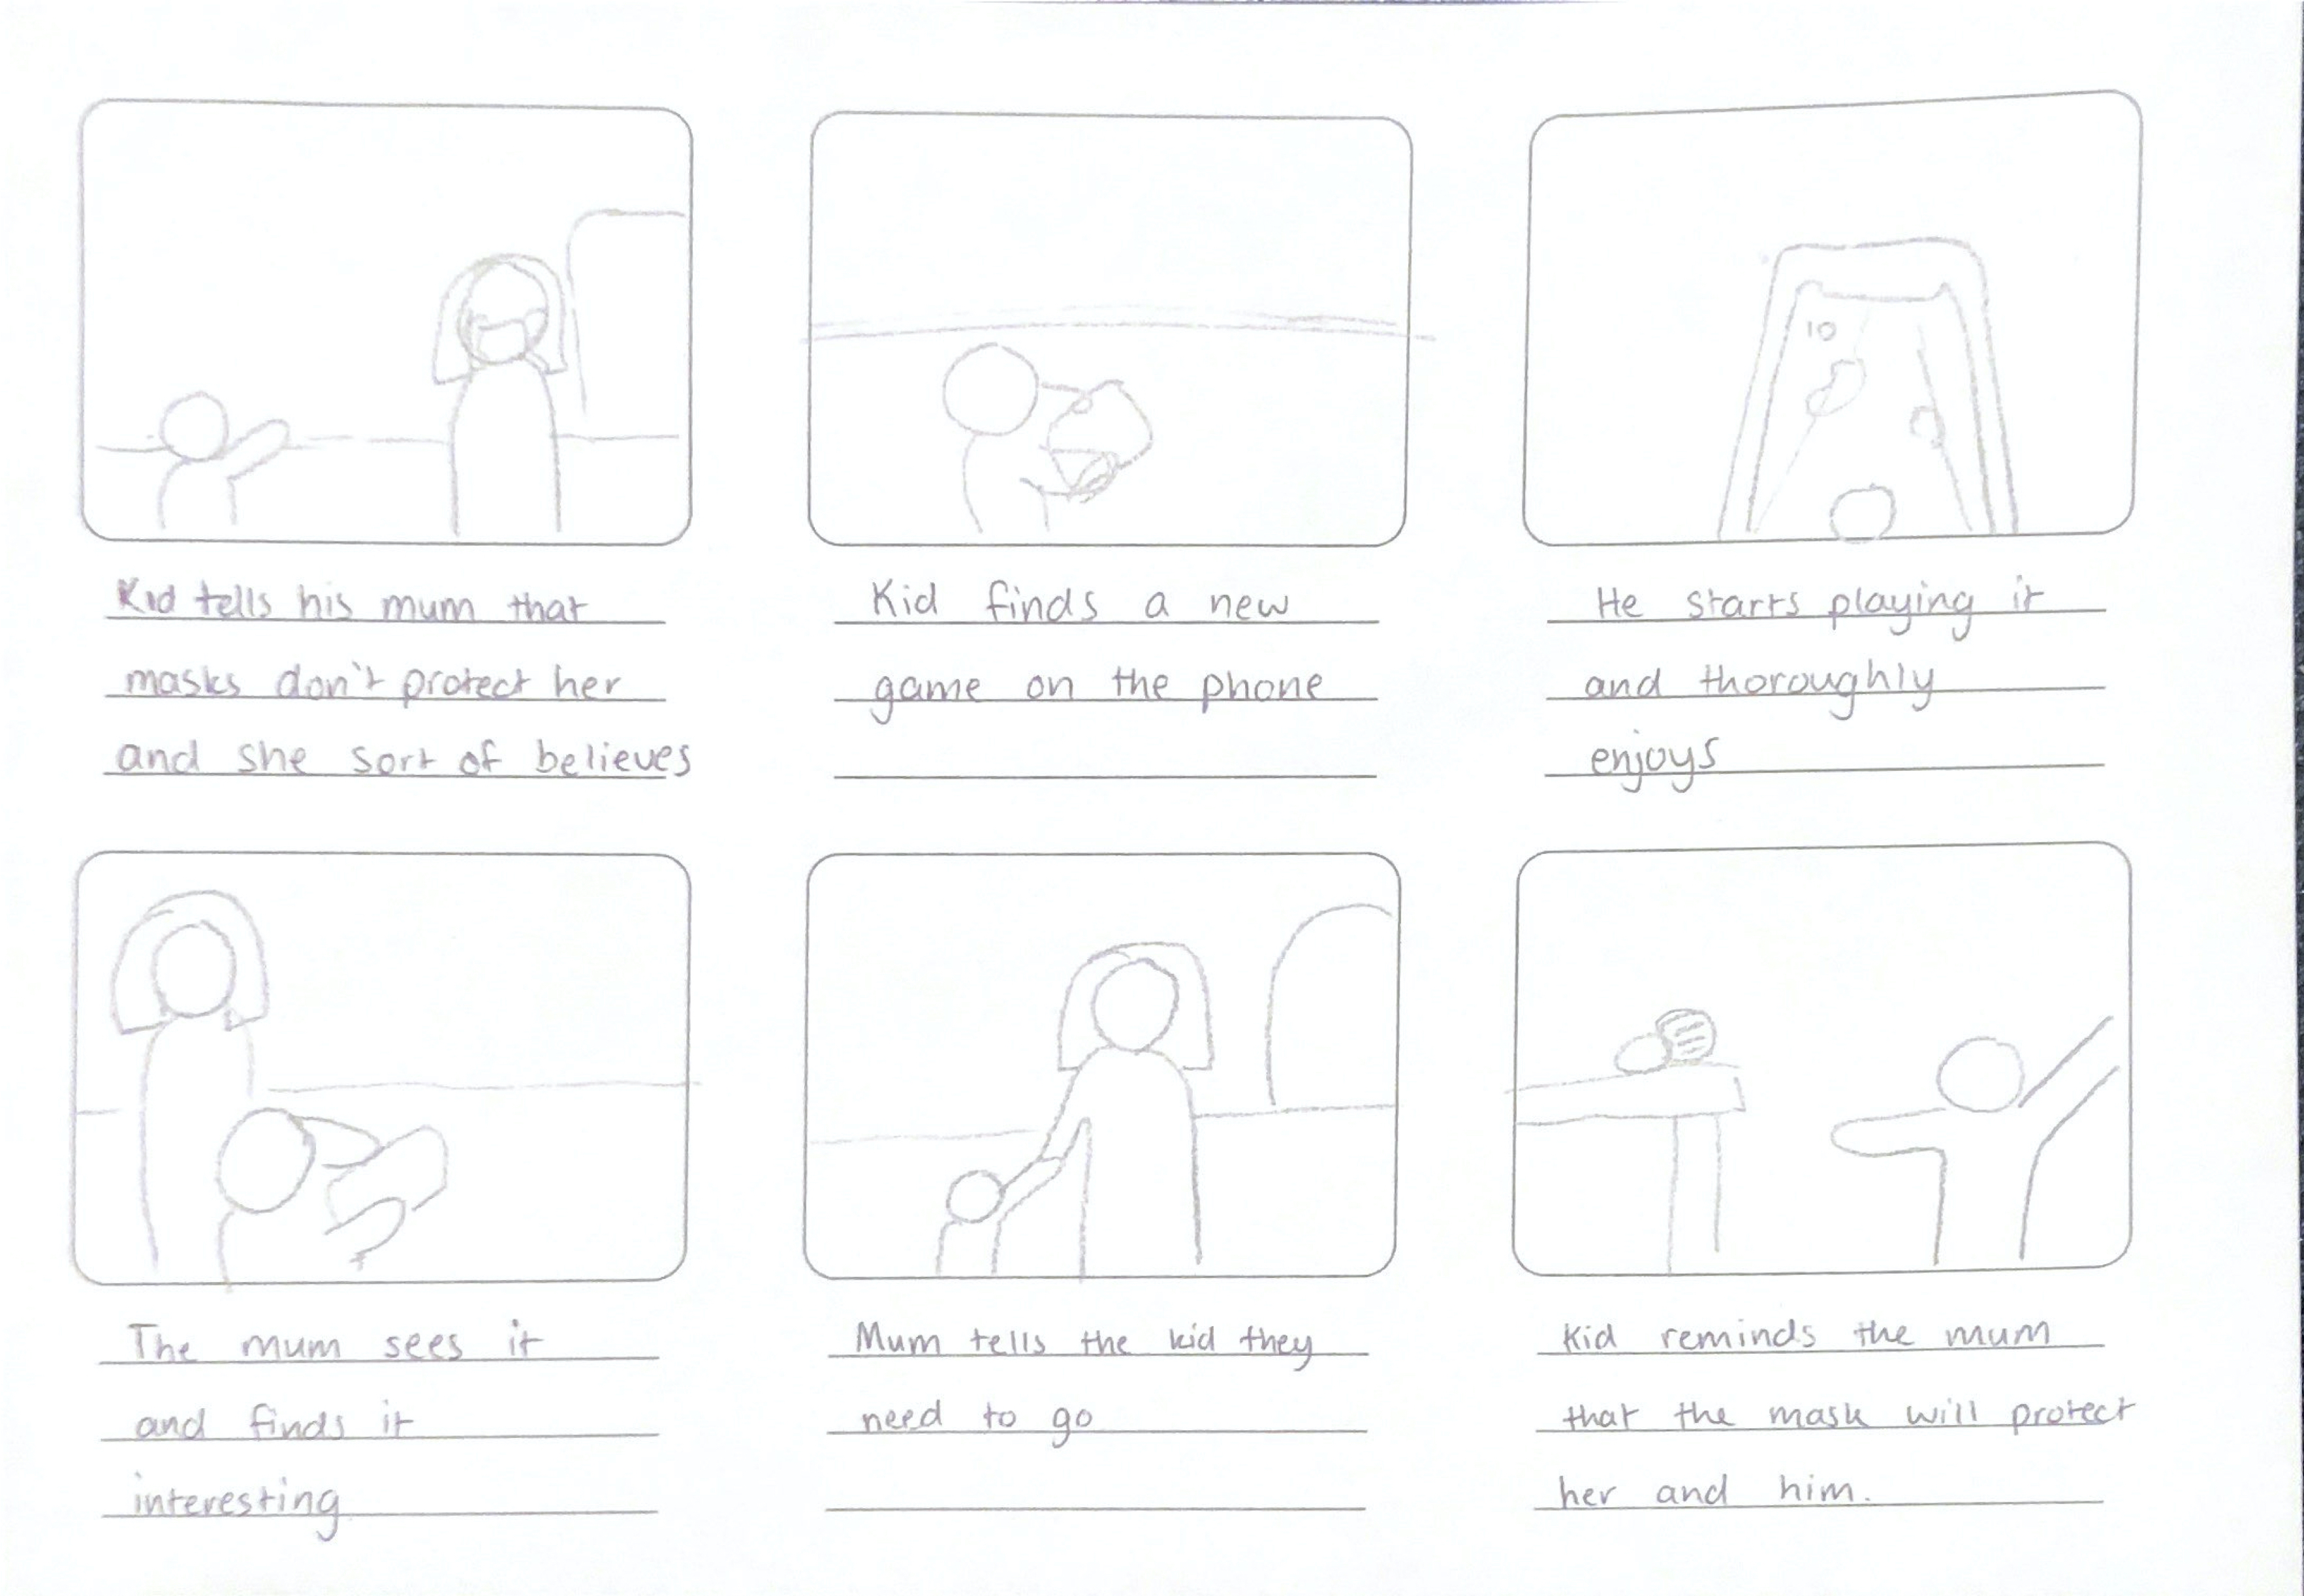 10
Kid tells his mum that
masks don't protect her
and she sort of believes
Kid finds a new
game on the phone
He starts playing it
and thoroughly
enjoys
The mum sees it
and finds it
interesting
Mum tells the kid they
need to go
Kid reminds the mum
that the mask will protect
her and him.